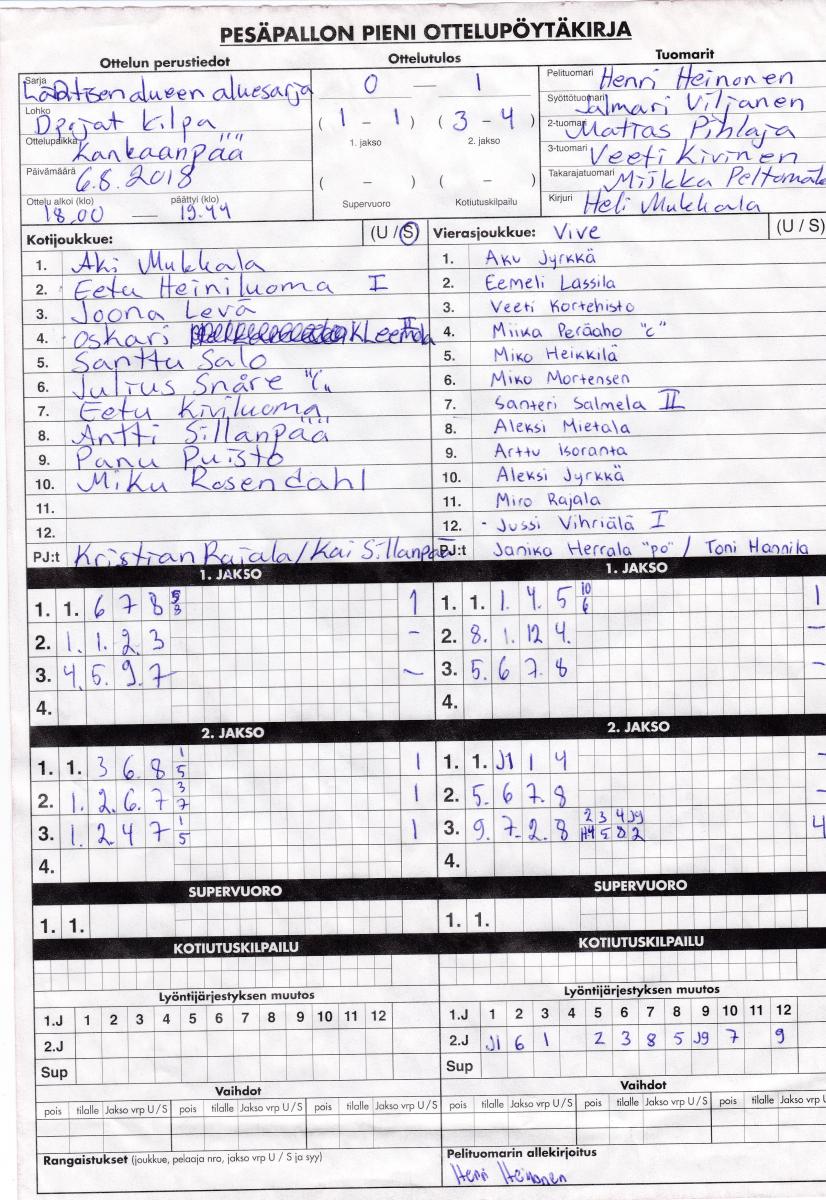 PESÄPALLON PIENI OTTELUPÖYTÄKIRJA
Ottelun perustiedot
Ottelutulos
Tuomarit
Sarja
alueen aluesarja
Lohko
kilpa
Ottelupaikka
Kankaanpää
Päivämäärä
6.8.2018
Ottelu alkoi (klo) päättyi (klo)
18.00 — 19.44
0 — 1
( 1 - 1 ) ( 3 - 4 )
1. jakso 2. jakso
( - ) ( - )
Supervuoro Kotiutuskilpailu
Pelituomari Henri Heinonen
Syöttötuomari Jalmari Viljanen
2-tuomari Matias Pihlaja
3-tuomari Veeti Kivinen
Takarajatuomari Miikka
Kirjuri Heli Mukkala
Kotijoukkue: (U / S)
1. Aki Mukkala
2. Eetu Heiniluoma I
3. Joona Levä
4. Oskari Kleemola II
5. Santtu Salo
6. Julius Snåre "C"
7. Eetu Kiviluoma
8. Antti Sillanpää
9. Panu Puisto
10. Miku Rosendahl
11.
12.
PJ:t Kristian Rajala / Kai Sillanpää
Vierasjoukkue: Vive (U / S)
1. Aku Jyrkkä
2. Eemeli Lassila
3. Veeti Kortehisto
4. Miika Peräaho "c"
5. Miko Heikkilä
6. Miko Mortensen
7. Santeri Salmela II
8. Aleksi Mietala
9. Arttu Isoranta
10. Aleksi Jyrkkä
11. Miro Rajala
12. Jussi Vihriälä I
PJ:t Janika Herrala "po" / Toni Hannila
1. JAKSO
1. 1. 6 7 8 5 3 1
2. 1. 1. 2 3 –
3. 4 5 9 7 –
4.
1. JAKSO
1. 1. 1. 4. 5 10 6 1
2. 8. 1. 12 4. –
3. 5. 6 7. 8 –
4.
2. JAKSO
1. 1. 3 6. 8 1 5 1
2. 1. 2. 6. 7 3 7 1
3. 1. 2 4 7 1 5 1
4.
2. JAKSO
1. 1. J1 1 4 –
2. 5. 6 7. 8 –
3. 9. 7. 2. 8 2 3 4 J9 5 8 2 4
4.
SUPERVUORO
1. 1.
SUPERVUORO
1. 1.
KOTIUTUSKILPAILU
KOTIUTUSKILPAILU
Lyöntijärjestyksen muutos
1.J 1 2 3 4 5 6 7 8 9 10 11 12
2.J
Sup
Lyöntijärjestyksen muutos
1.J 1 2 3 4 5 6 7 8 9 10 11 12
2.J J1 6 1 2 3 8 5 J9 7 9
Sup
Vaihdot
pois tilalle Jakso vrp U/S pois tilalle Jakso vrp U/S pois tilalle Jakso vrp U/S
Vaihdot
pois tilalle Jakso vrp U/S pois tilalle Jakso vrp U/S pois tilalle Jakso vrp U
Rangaistukset (joukkue, pelaaja nro, jakso vrp U / S ja syy)
Pelituomarin allekirjoitus
Henri Heinonen